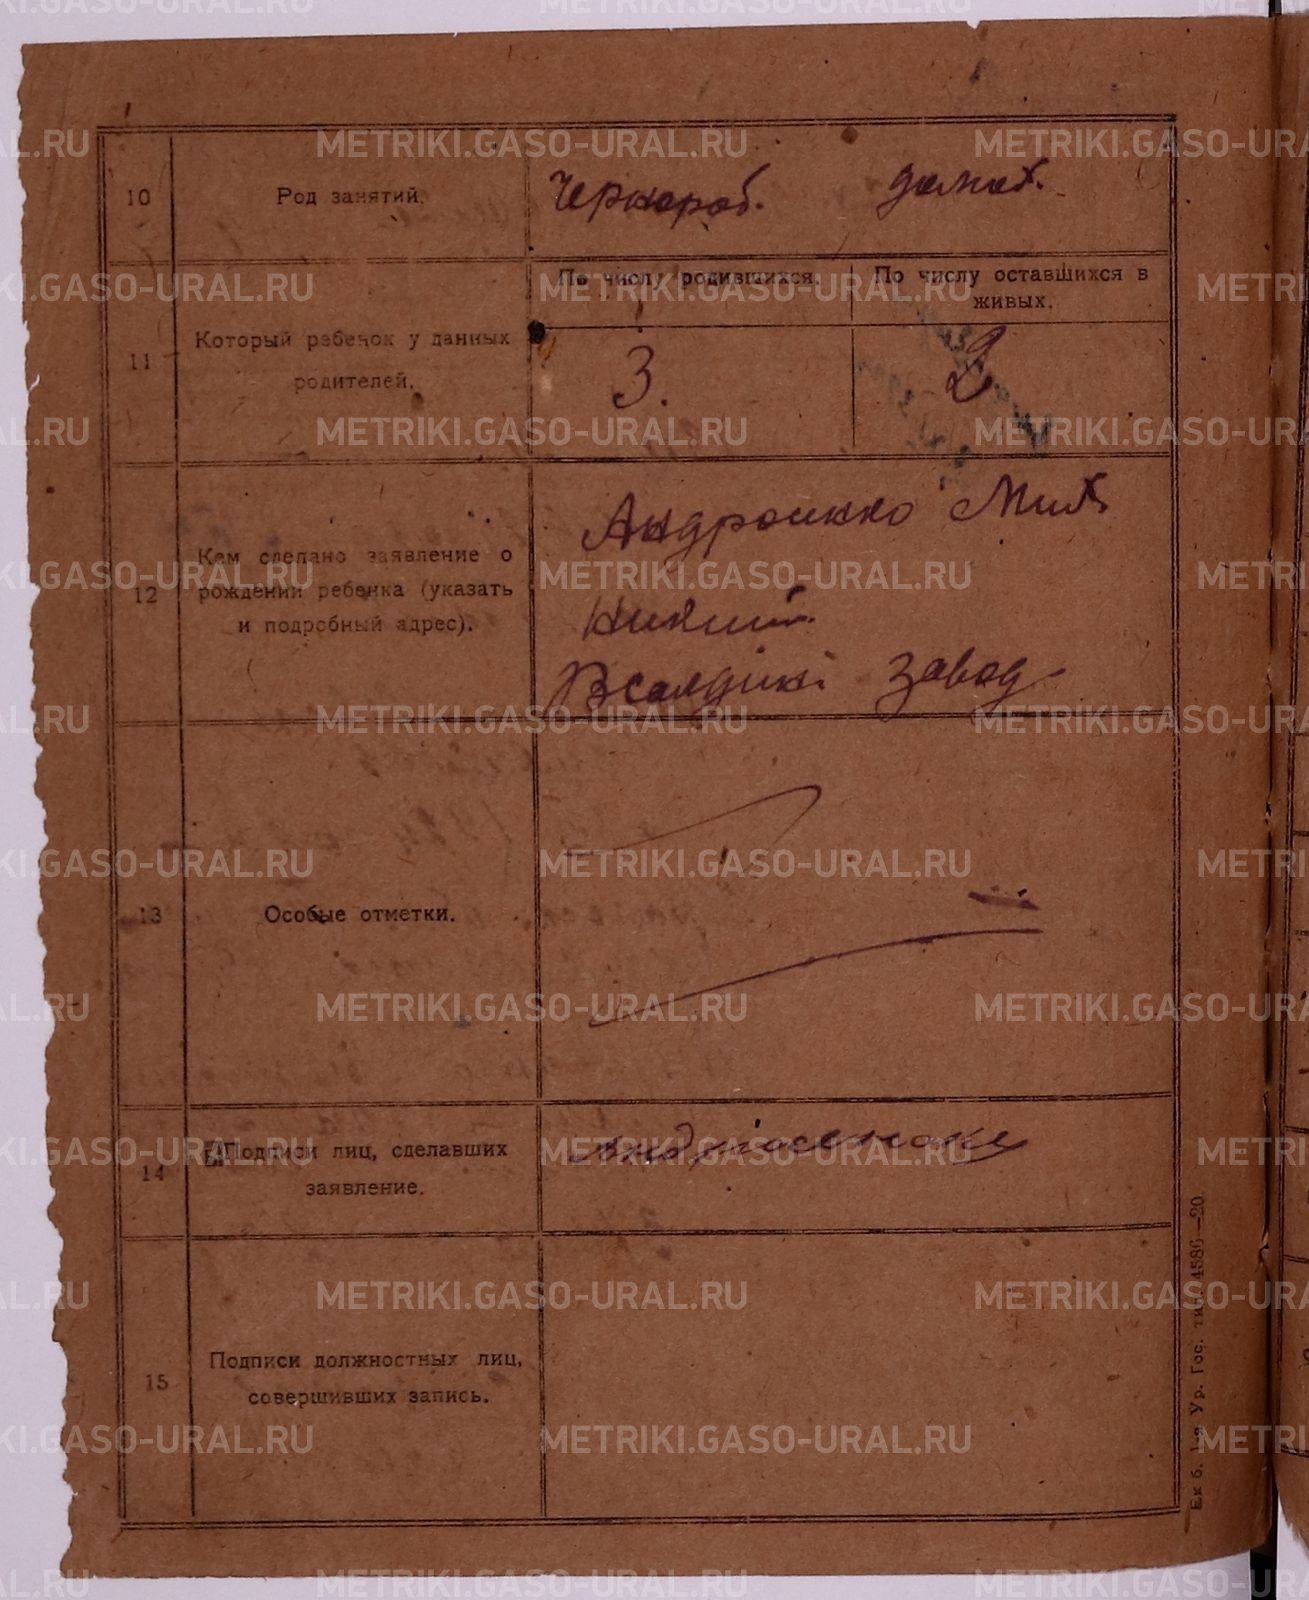 10
Род занятий.
Чернораб.
домох.
11
Который ребенок у данных
родителей.
По числу родившихся.
По числу оставшихся в
живых.
3.
2
12
Кем сделано заявление о
рождении ребенка (указать
и подробный адрес).
Андроненко Мих
Нижний
завод
13
Особые отметки.
14
Подписи лиц, сделавших
заявление.
15
Подписи должностных лиц,
совершивших запись.
Ек б. 1-я Ур. Гос. тип. 4586—20.
METRIKI.GASO-URAL.RU